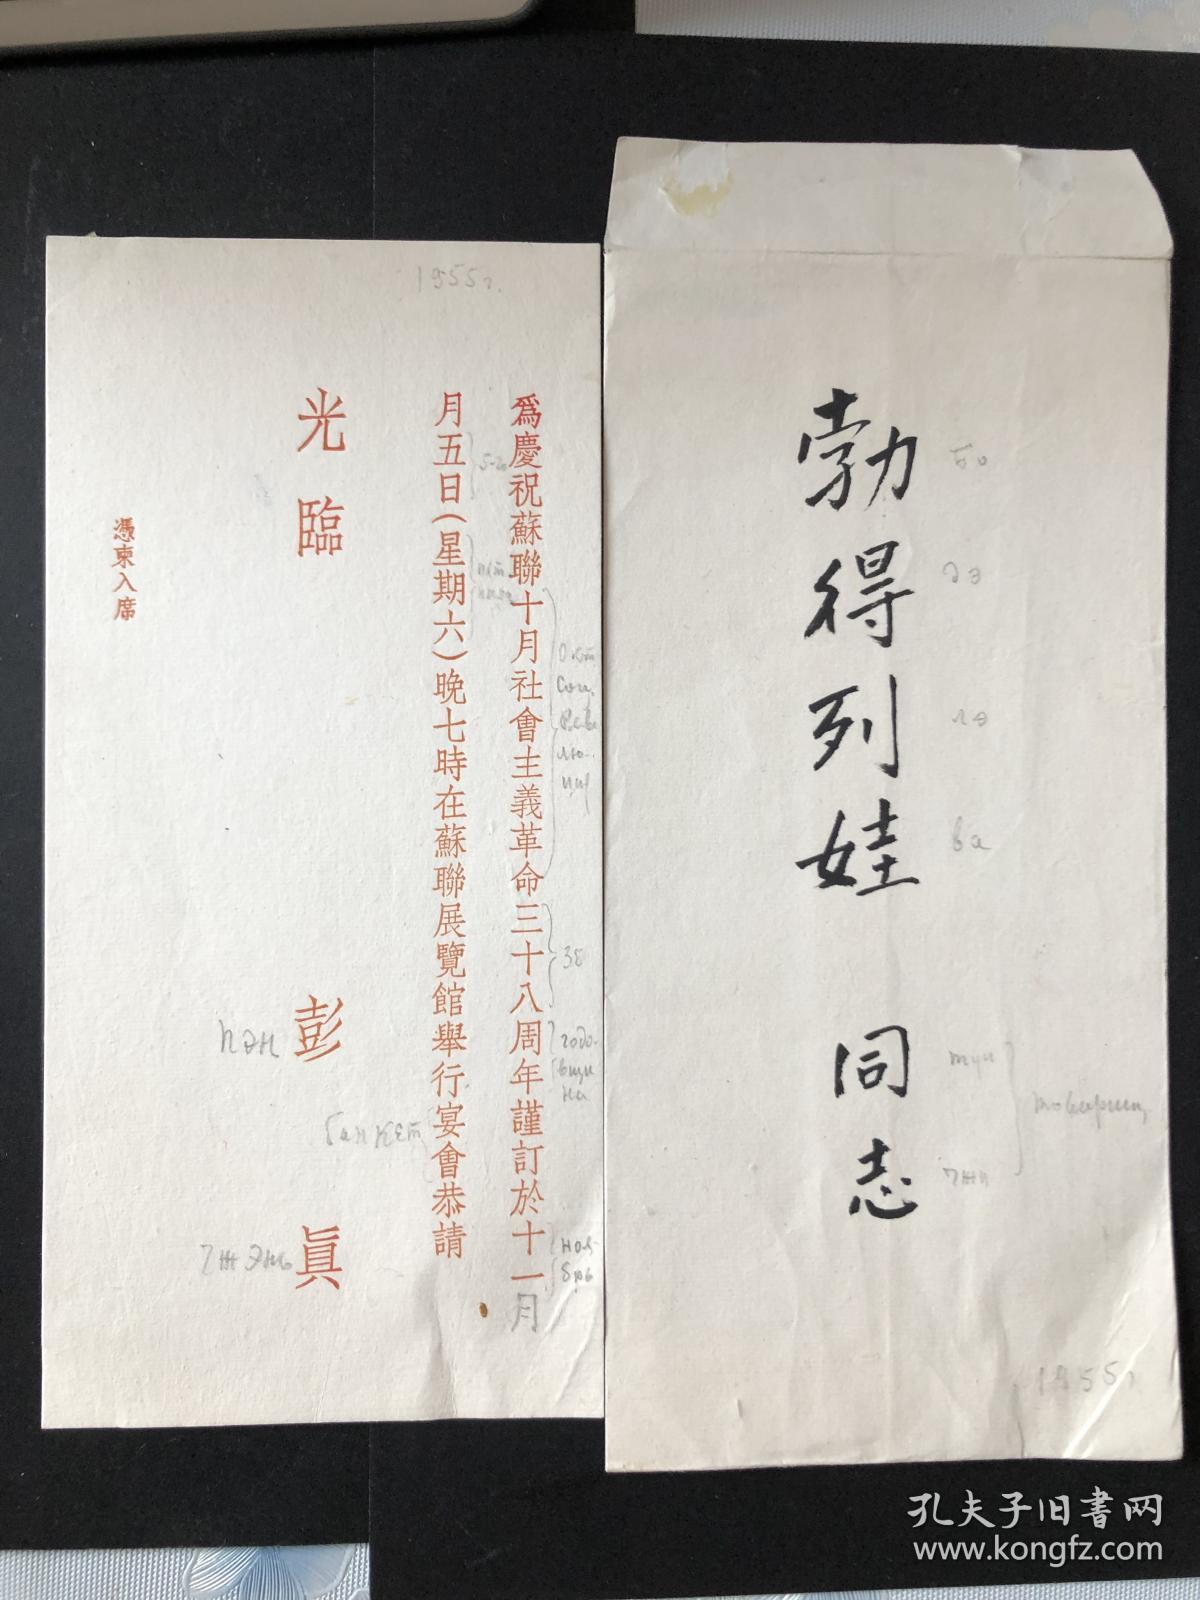 1955г.
爲慶祝蘇聯十月社會主義革命三十八周年謹訂於十一月
月五日(星期六)晚七時在蘇聯展覽館舉行宴會恭請
光臨
彭真
憑柬入席
Окт.
Соц.
Рево
лю-
ции
38
годо-
вщи
на
ноя-
брь
банкет
пэн
чжэнь
勃得列娃 同志
бо
дэ
лэ
ва
тун
чжи
товарищ
1955г
孔夫子旧书网
www.kongfz.com